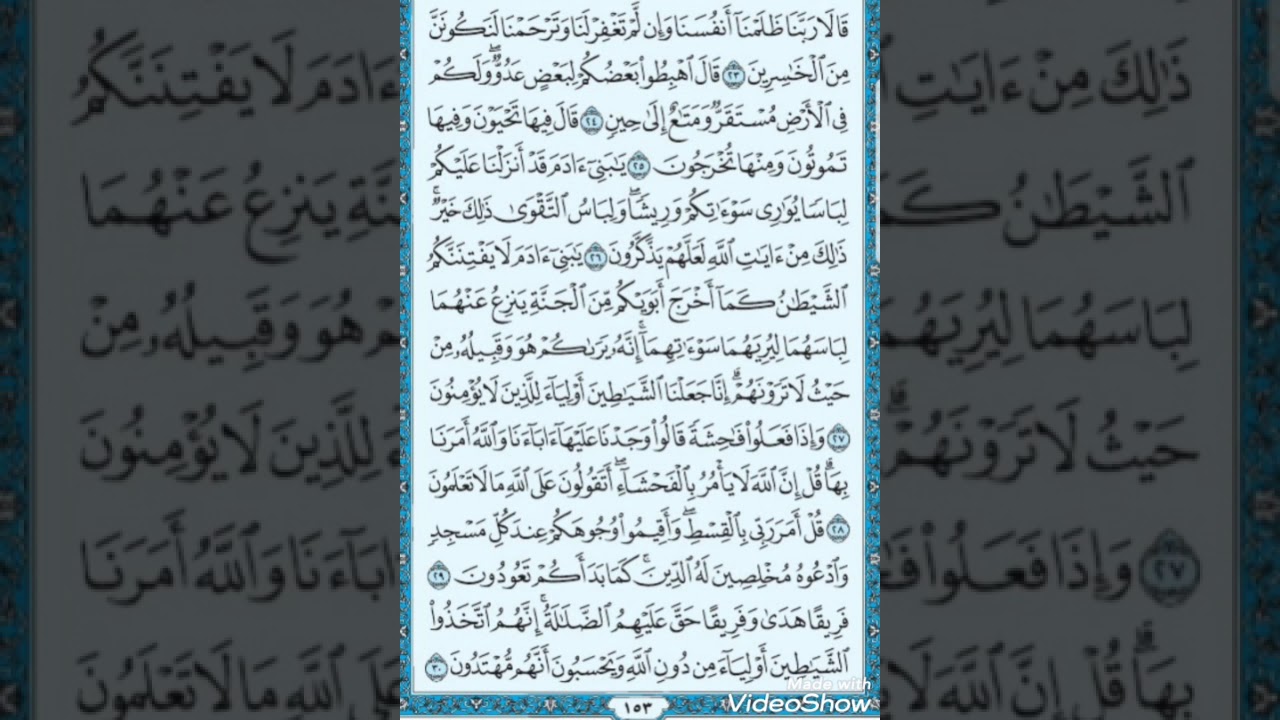 قَالَا رَبَّنَا ظَلَمْنَآ أَنفُسَنَا وَإِن لَّمْ تَغْفِرْ لَنَا وَتَرْحَمْنَا لَنَكُونَنَّ
مِنَ ٱلْخَٰسِرِينَ ٢٣ قَالَ ٱهْبِطُوا۟ بَعْضُكُمْ لِبَعْضٍ عَدُوٌّ ۖ وَلَكُمْ
فِى ٱلْأَرْضِ مُسْتَقَرٌّ وَمَتَٰعٌ إِلَىٰ حِينٍ ٢٤ قَالَ فِيهَا تَحْيَوْنَ وَفِيهَا
تَمُوتُونَ وَمِنْهَا تُخْرَجُونَ ٢٥ يَٰبَنِىٓ ءَادَمَ قَدْ أَنزَلْنَا عَلَيْكُمْ
لِبَاسًا يُوَٰرِى سَوْءَٰتِكُمْ وَرِيشًا ۖ وَلِبَاسُ ٱلتَّقْوَىٰ ذَٰلِكَ خَيْرٌ ۚ
ذَٰلِكَ مِنْ ءَايَٰتِ ٱللَّهِ لَعَلَّهُمْ يَذَّكَّرُونَ ٢٦ يَٰبَنِىٓ ءَادَمَ لَا يَفْتِنَنَّكُمُ
ٱلشَّيْطَٰنُ كَمَآ أَخْرَجَ أَبَوَيْكُم مِّنَ ٱلْجَنَّةِ يَنزِعُ عَنْهُمَا
لِبَاسَهُمَا لِيُرِيَهُمَا سَوْءَٰتِهِمَآ ۗ إِنَّهُۥ يَرَىٰكُمْ هُوَ وَقَبِيلُهُۥ مِنْ
حَيْثُ لَا تَرَوْنَهُمْ ۗ إِنَّا جَعَلْنَا ٱلشَّيَٰطِينَ أَوْلِيَآءَ لِلَّذِينَ لَا يُؤْمِنُونَ
٢٧ وَإِذَا فَعَلُوا۟ فَٰحِشَةً قَالُوا۟ وَجَدْنَا عَلَيْهَآ ءَابَآءَنَا وَٱللَّهُ أَمَرَنَا
بِهَا ۗ قُلْ إِنَّ ٱللَّهَ لَا يَأْمُرُ بِٱلْفَحْشَآءِ ۖ أَتَقُولُونَ عَلَى ٱللَّهِ مَا لَا تَعْلَمُونَ
٢٨ قُلْ أَمَرَ رَبِّى بِٱلْقِسْطِ ۖ وَأَقِيمُوا۟ وُجُوهَكُمْ عِندَ كُلِّ مَسْجِدٍ
وَٱدْعُوهُ مُخْلِصِينَ لَهُ ٱلدِّينَ ۚ كَمَا بَدَأَكُمْ تَعُودُونَ ٢٩
فَرِيقًا هَدَىٰ وَفَرِيقًا حَقَّ عَلَيْهِمُ ٱلضَّلَٰلَةُ ۗ إِنَّهُمُ ٱتَّخَذُوا۟
ٱلشَّيَٰطِينَ أَوْلِيَآءَ مِن دُونِ ٱللَّهِ وَيَحْسَبُونَ أَنَّهُم مُّهْتَدُونَ ٣٠
١٥٣
Made with
VideoShow